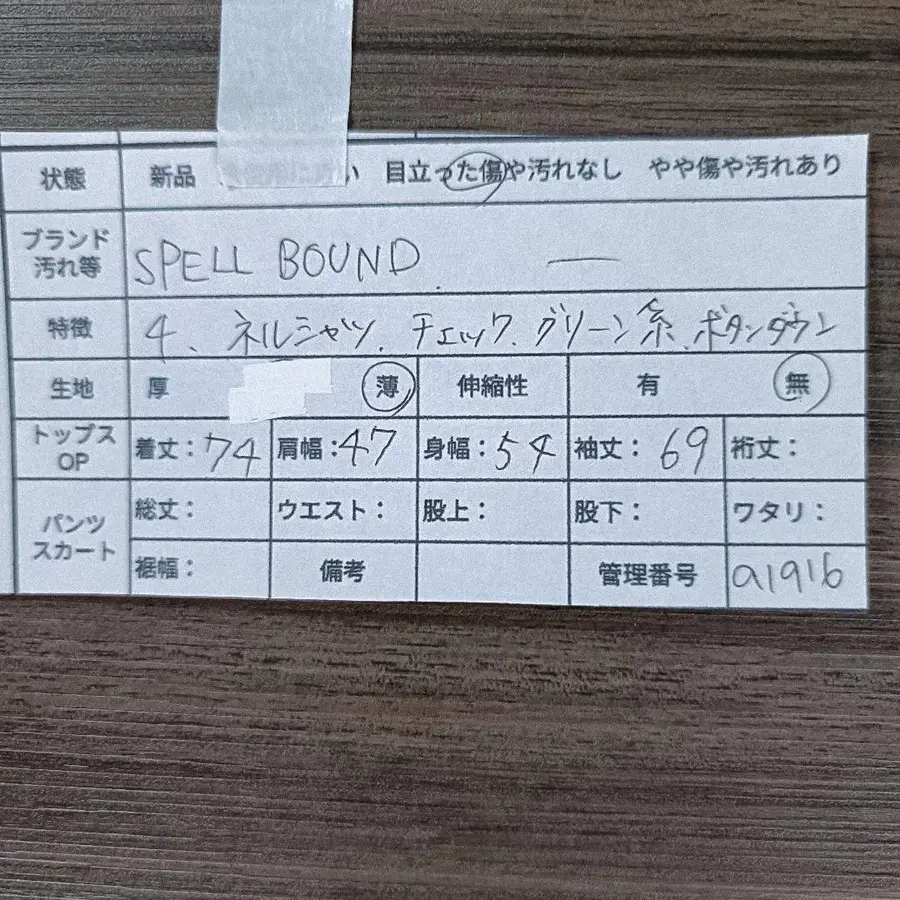 状態 新品 い 目立った傷や汚れなし やや傷や汚れあり
ブランド 汚れ等 SPELL BOUND ―
特徴 4、ネルシャツ、チェック、グリーン系、ボタンダウン
生地 厚 薄 伸縮性 有 無
トップス OP 着丈：74 肩幅：47 身幅：54 袖丈：69 裄丈：
パンツ スカート 総丈： ウエスト： 股上： 股下： ワタリ：
裾幅： 備考 管理番号 a1916